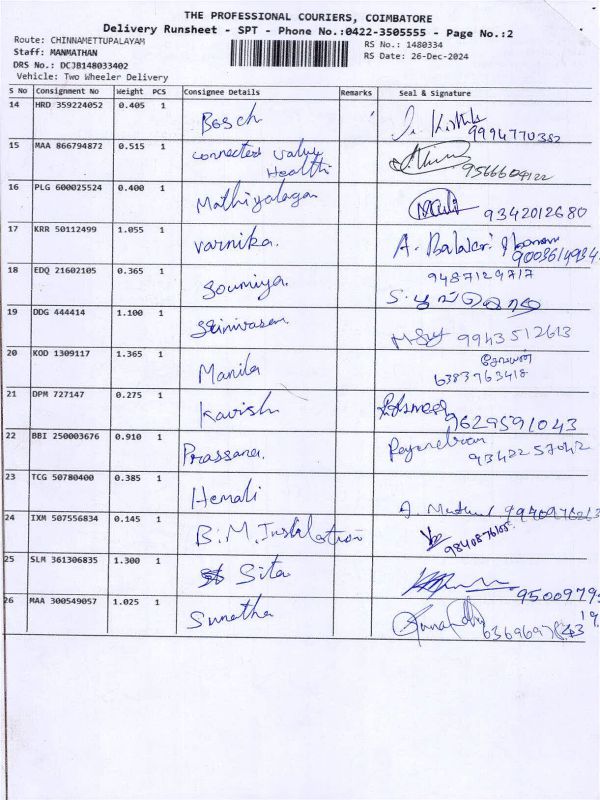 THE PROFESSIONAL COURIERS, COIMBATORE
Delivery Runsheet - SPT - Phone No.:0422-3505555 - Page No.:2
Route: CHINNAMETTUPALAYAM
RS No.: 1480334
Staff: MANMATHAN
RS Date: 26-Dec-2024
DRS No.: DCJB148033402
Vehicle: Two Wheeler Delivery
S No Consignment No Weight PCS Consignee Details Remarks Seal & Signature
14 HRD 359224052 0.405 1 Bosch 9994770352
15 MAA 866794872 0.515 1 connected value Health 9566604122
16 PLG 600025524 0.400 1 Mathiyalagan Mali 9342012680
17 KRR 50112499 1.055 1 varnika. A. Balaari
18 EDQ 21602105 0.365 1 Soumiya. 9487129717
19 DDG 444414 1.100 1 Srinivasan 9943512613
20 KOD 1309117 1.365 1 Manila 6383963418
21 DPM 727147 0.275 1 Kavish 9629591043
22 BBI 250003676 0.910 1 Prassana. 9342257042
23 TCG 50780400 0.385 1 Hemali
24 IXM 507556834 0.145 1 B.M. Instalation 9840876105
25 SLM 361306835 1.300 1 Sita 9500979
26 MAA 300549057 1.025 1 Sunatha